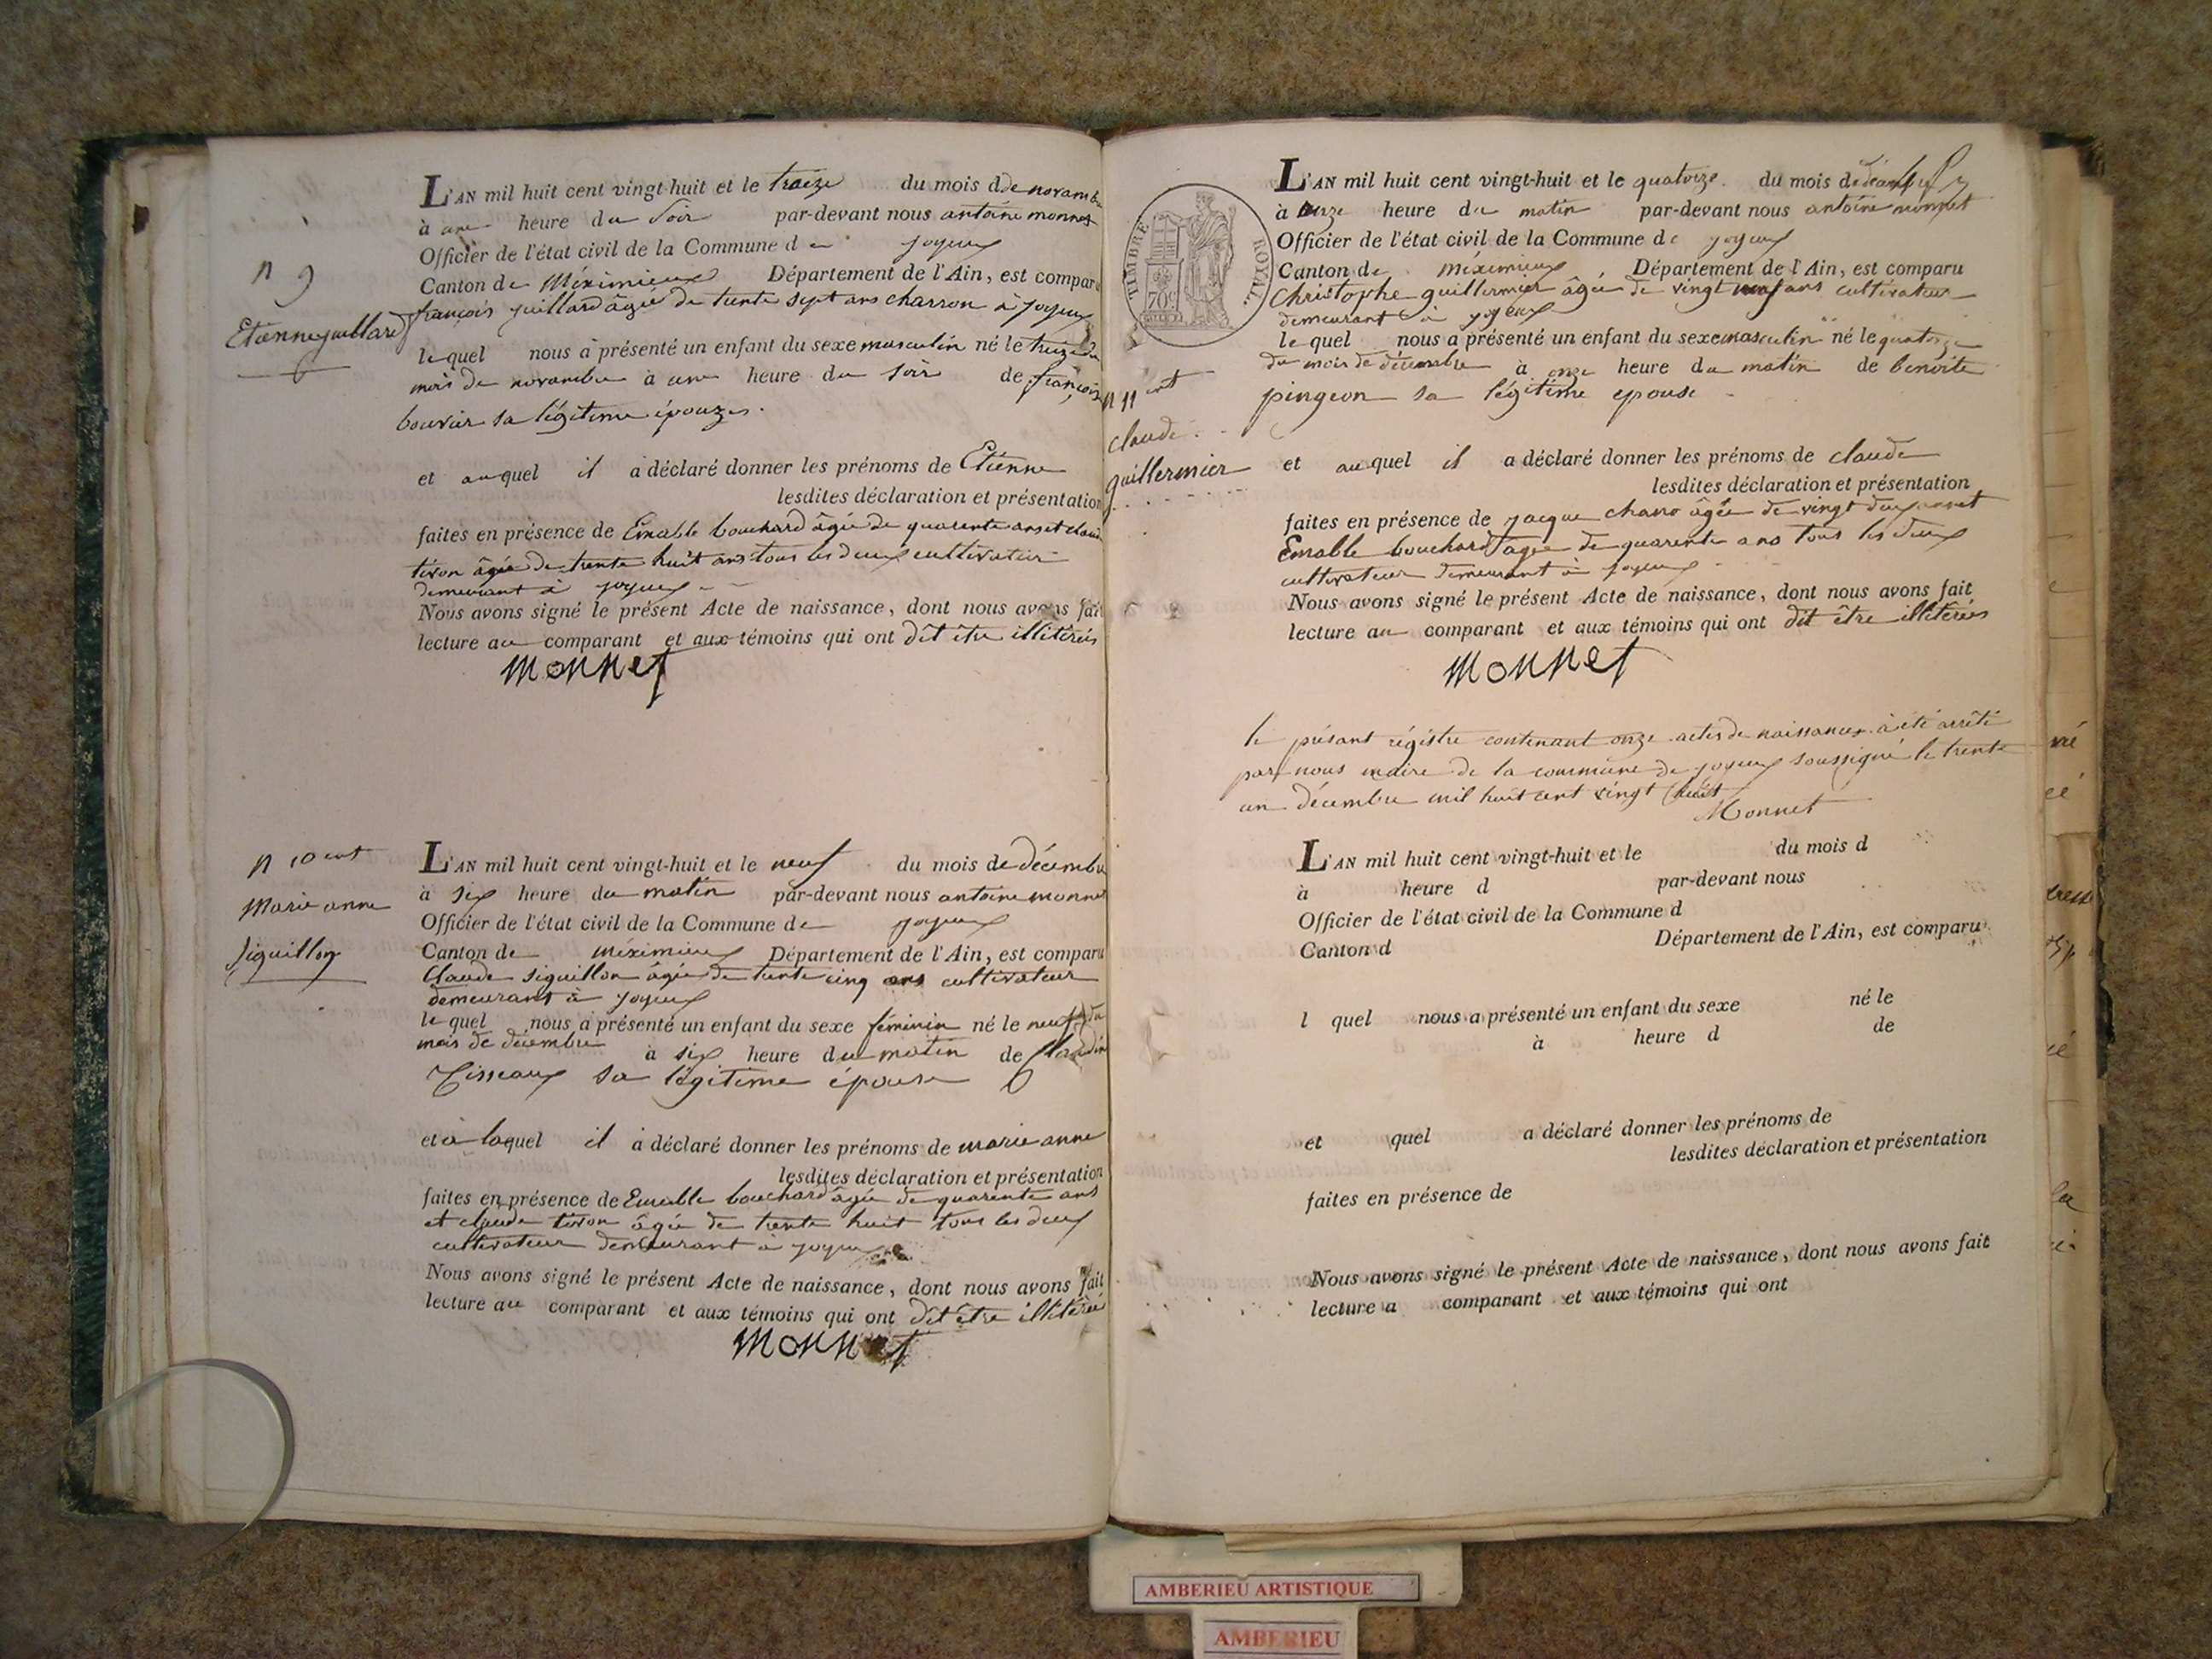 n 9
Etienne juillard
L'AN mil huit cent vingt-huit et le traize du mois de novambre
à une heure du Soir par-devant nous antoine monnet
Officier de l'état civil de la Commune de joyeux
Canton de Méximieux Département de l'Ain, est comparu
françois juillard âgée de trente sept ans charron à joyeux
lequel nous a présenté un enfant du sexe masculin né le treize du
mois de novambre à une heure du soir de françoise
bouvier sa légitime épouze.
et auquel il a déclaré donner les prénoms de Etienne
lesdites déclaration et présentation
faites en présence de Emable bouchard âgée de quarente ans et claude
tivon âgée de trente huit ans tous les deux cultivateur
demeurant à joyeux
Nous avons signé le présent Acte de naissance, dont nous avons fait
lecture au comparant et aux témoins qui ont dit être illitérés
Monnet
n 10
Marie anne
Siguillon
L'AN mil huit cent vingt-huit et le neuf du mois de décembre
à six heure du matin par-devant nous antoine monnet
Officier de l'état civil de la Commune de joyeux
Canton de méximieux Département de l'Ain, est comparu
Claude siguillon âgée de trente cinq ans cultivateur
demeurant à joyeux
lequel nous a présenté un enfant du sexe féminin né le neuf du
mois de décembre à six heure du matin de Claudine
Tisseaux sa légitime épouse
et à laquel il a déclaré donner les prénoms de marie anne
lesdites déclaration et présentation
faites en présence de Emable bouchard âgée de quarente ans
et claude tivon âgée de trente huit tous les deux
cultivateur demeurant à joyeux
Nous avons signé le présent Acte de naissance, dont nous avons fait
lecture au comparant et aux témoins qui ont dit être illitérés
Monnet
TIMBRE ROYAL
70c
n 11
claude
guillermier
L'AN mil huit cent vingt-huit et le quatorze du mois de décembre
à onze heure du matin par-devant nous antoine monnet
Officier de l'état civil de la Commune de joyeux
Canton de méximieux Département de l'Ain, est comparu
Christophe guillermier âgée de vingt neuf ans cultivateur
demeurant à joyeux
lequel nous a présenté un enfant du sexe masculin né le quatorze
du mois de décembre à onze heure du matin de benoite
pingeon sa légitime epouse
et auquel il a déclaré donner les prénoms de claude
lesdites déclaration et présentation
faites en présence de jacque âgée de vingt
Emable bouchard âgée de quarente ans tous les deux
cultivateur demeurant à joyeux
Nous avons signé le présent Acte de naissance, dont nous avons fait
lecture au comparant et aux témoins qui ont dit être illitérés
Monnet
le présant régistre contenant onze actes de naissances à été arrêté
par nous maire de la commune de joyeux soussigné le trente
un décembre mil huit cent vingt huit
Monnet
L'AN mil huit cent vingt-huit et le du mois d
à heure d par-devant nous
Officier de l'état civil de la Commune d
Canton d Département de l'Ain, est comparu
l quel nous a présenté un enfant du sexe né le
à heure d de
et quel a déclaré donner les prénoms de
lesdites déclaration et présentation
faites en présence de
Nous avons signé le présent Acte de naissance, dont nous avons fait
lecture a comparant et aux témoins qui ont
AMBERIEU ARTISTIQUE
AMBERIEU